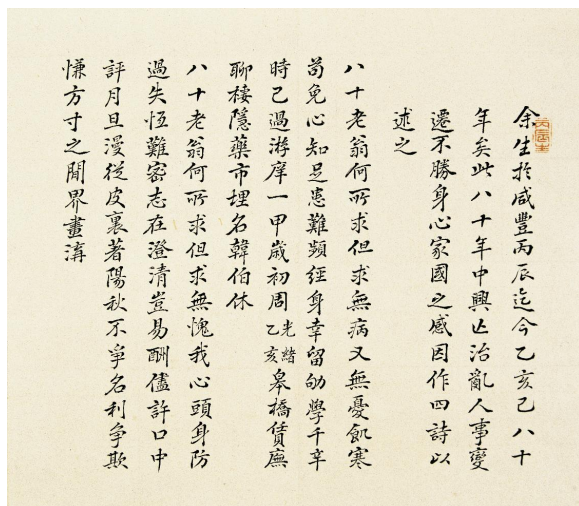 丙辰生
余生於咸豐丙辰迄今乙亥已八十
年矣此八十年中興亡治亂人事變
遷不勝身心家國之感因作四詩以
述之
八十老翁何所求但求無病又無憂飢寒
苟免心知足患難頻經身幸留劬學千辛
時已過游庠一甲歲初周光緒乙亥皋橋賃廡
聊棲隱藥市埋名韓伯休
八十老翁何所求但求無愧我心頭身防
過失恆難密志在澄清豈易酬儘許口中
評月旦漫從皮裏著陽秋不爭名利爭欺
慊方寸之間界畫溝